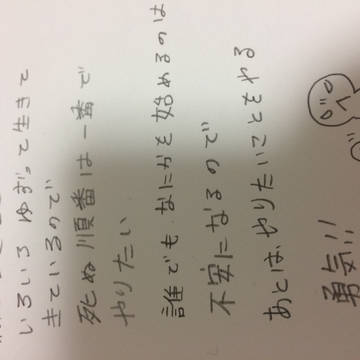 いろいろ ゆずって生きて
きているので
死ぬ順番は一番で
やりたい
誰でも なにかを始めるのは
不安になるので
あとは、やりたいことをやる
勇気!!